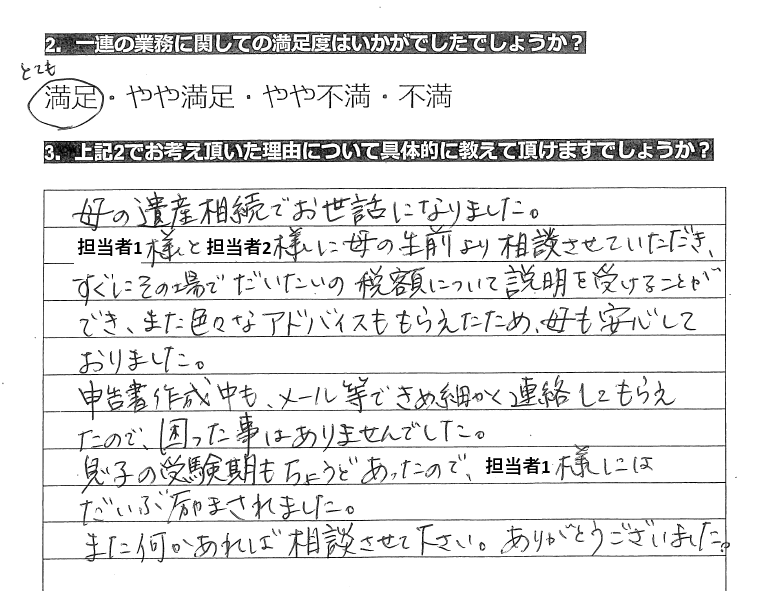 2. 一連の業務に関しての満足度はいかがでしたでしょうか？
とても
満足・やや満足・やや不満・不満
3. 上記2でお考え頂いた理由について具体的に教えて頂けますでしょうか？
母の遺産相続でお世話になりました。
担当者1様と担当者2様に母の生前より相談させていただき、
すぐにその場でだいたいの税額について説明を受けることが
でき、また色々なアドバイスももらえたため、母も安心して
おりました。
申告書作成中も、メール等できめ細かく連絡してもらえ
たので、困った事はありませんでした。
息子の受験期もちょうどあったので、担当者1様には
だいぶ励まされました。
また何かあれば相談させて下さい。ありがとうございました。